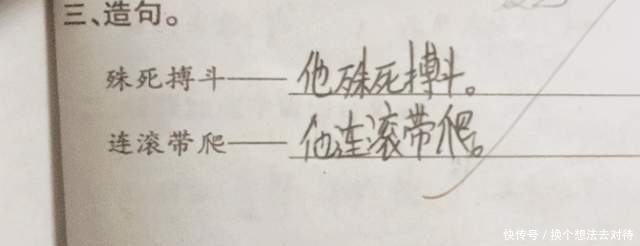 三、造句。
殊死搏斗——他殊死搏斗。
连滚带爬——他连滚带爬。
快传号/换个想法去对待